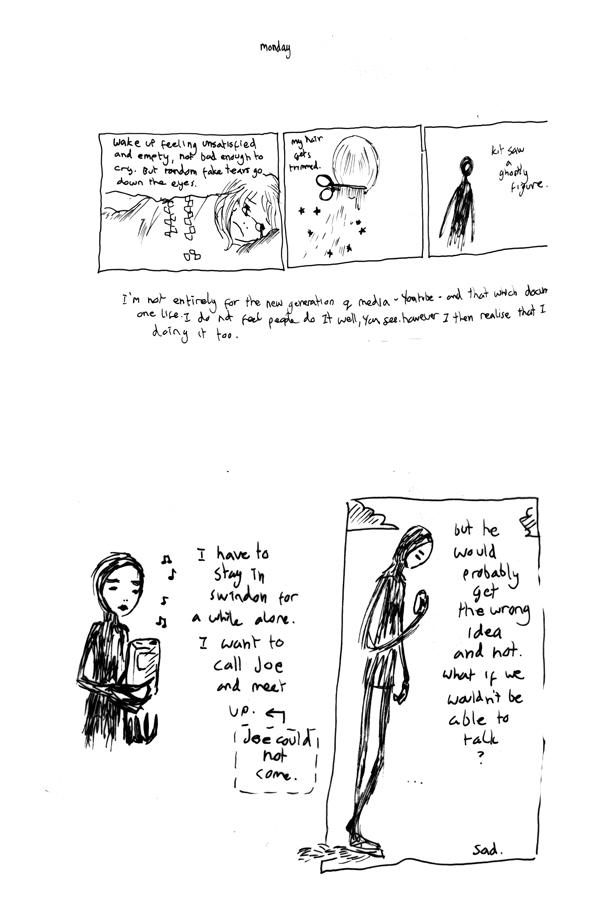 monday
Wake up feeling unsatisfied
and empty, not bad enough to
cry. But random fake tears go
down the eyes.
my hair
gets
trimmed.
kit saw
a
ghostly
figure.
I'm not entirely for the new generation of media - Youtube - and that which docum
one life. I do not feel people do It well, You see. however I then realise that I
doing it too.
I have to
stay in
swindon for
a while alone.
I want to
call Joe
and meet
up.
Joe could
not
come.
but he
would
probably
get
the wrong
idea
and not.
what if we
wouldn't be
able to
talk
?
...
sad.